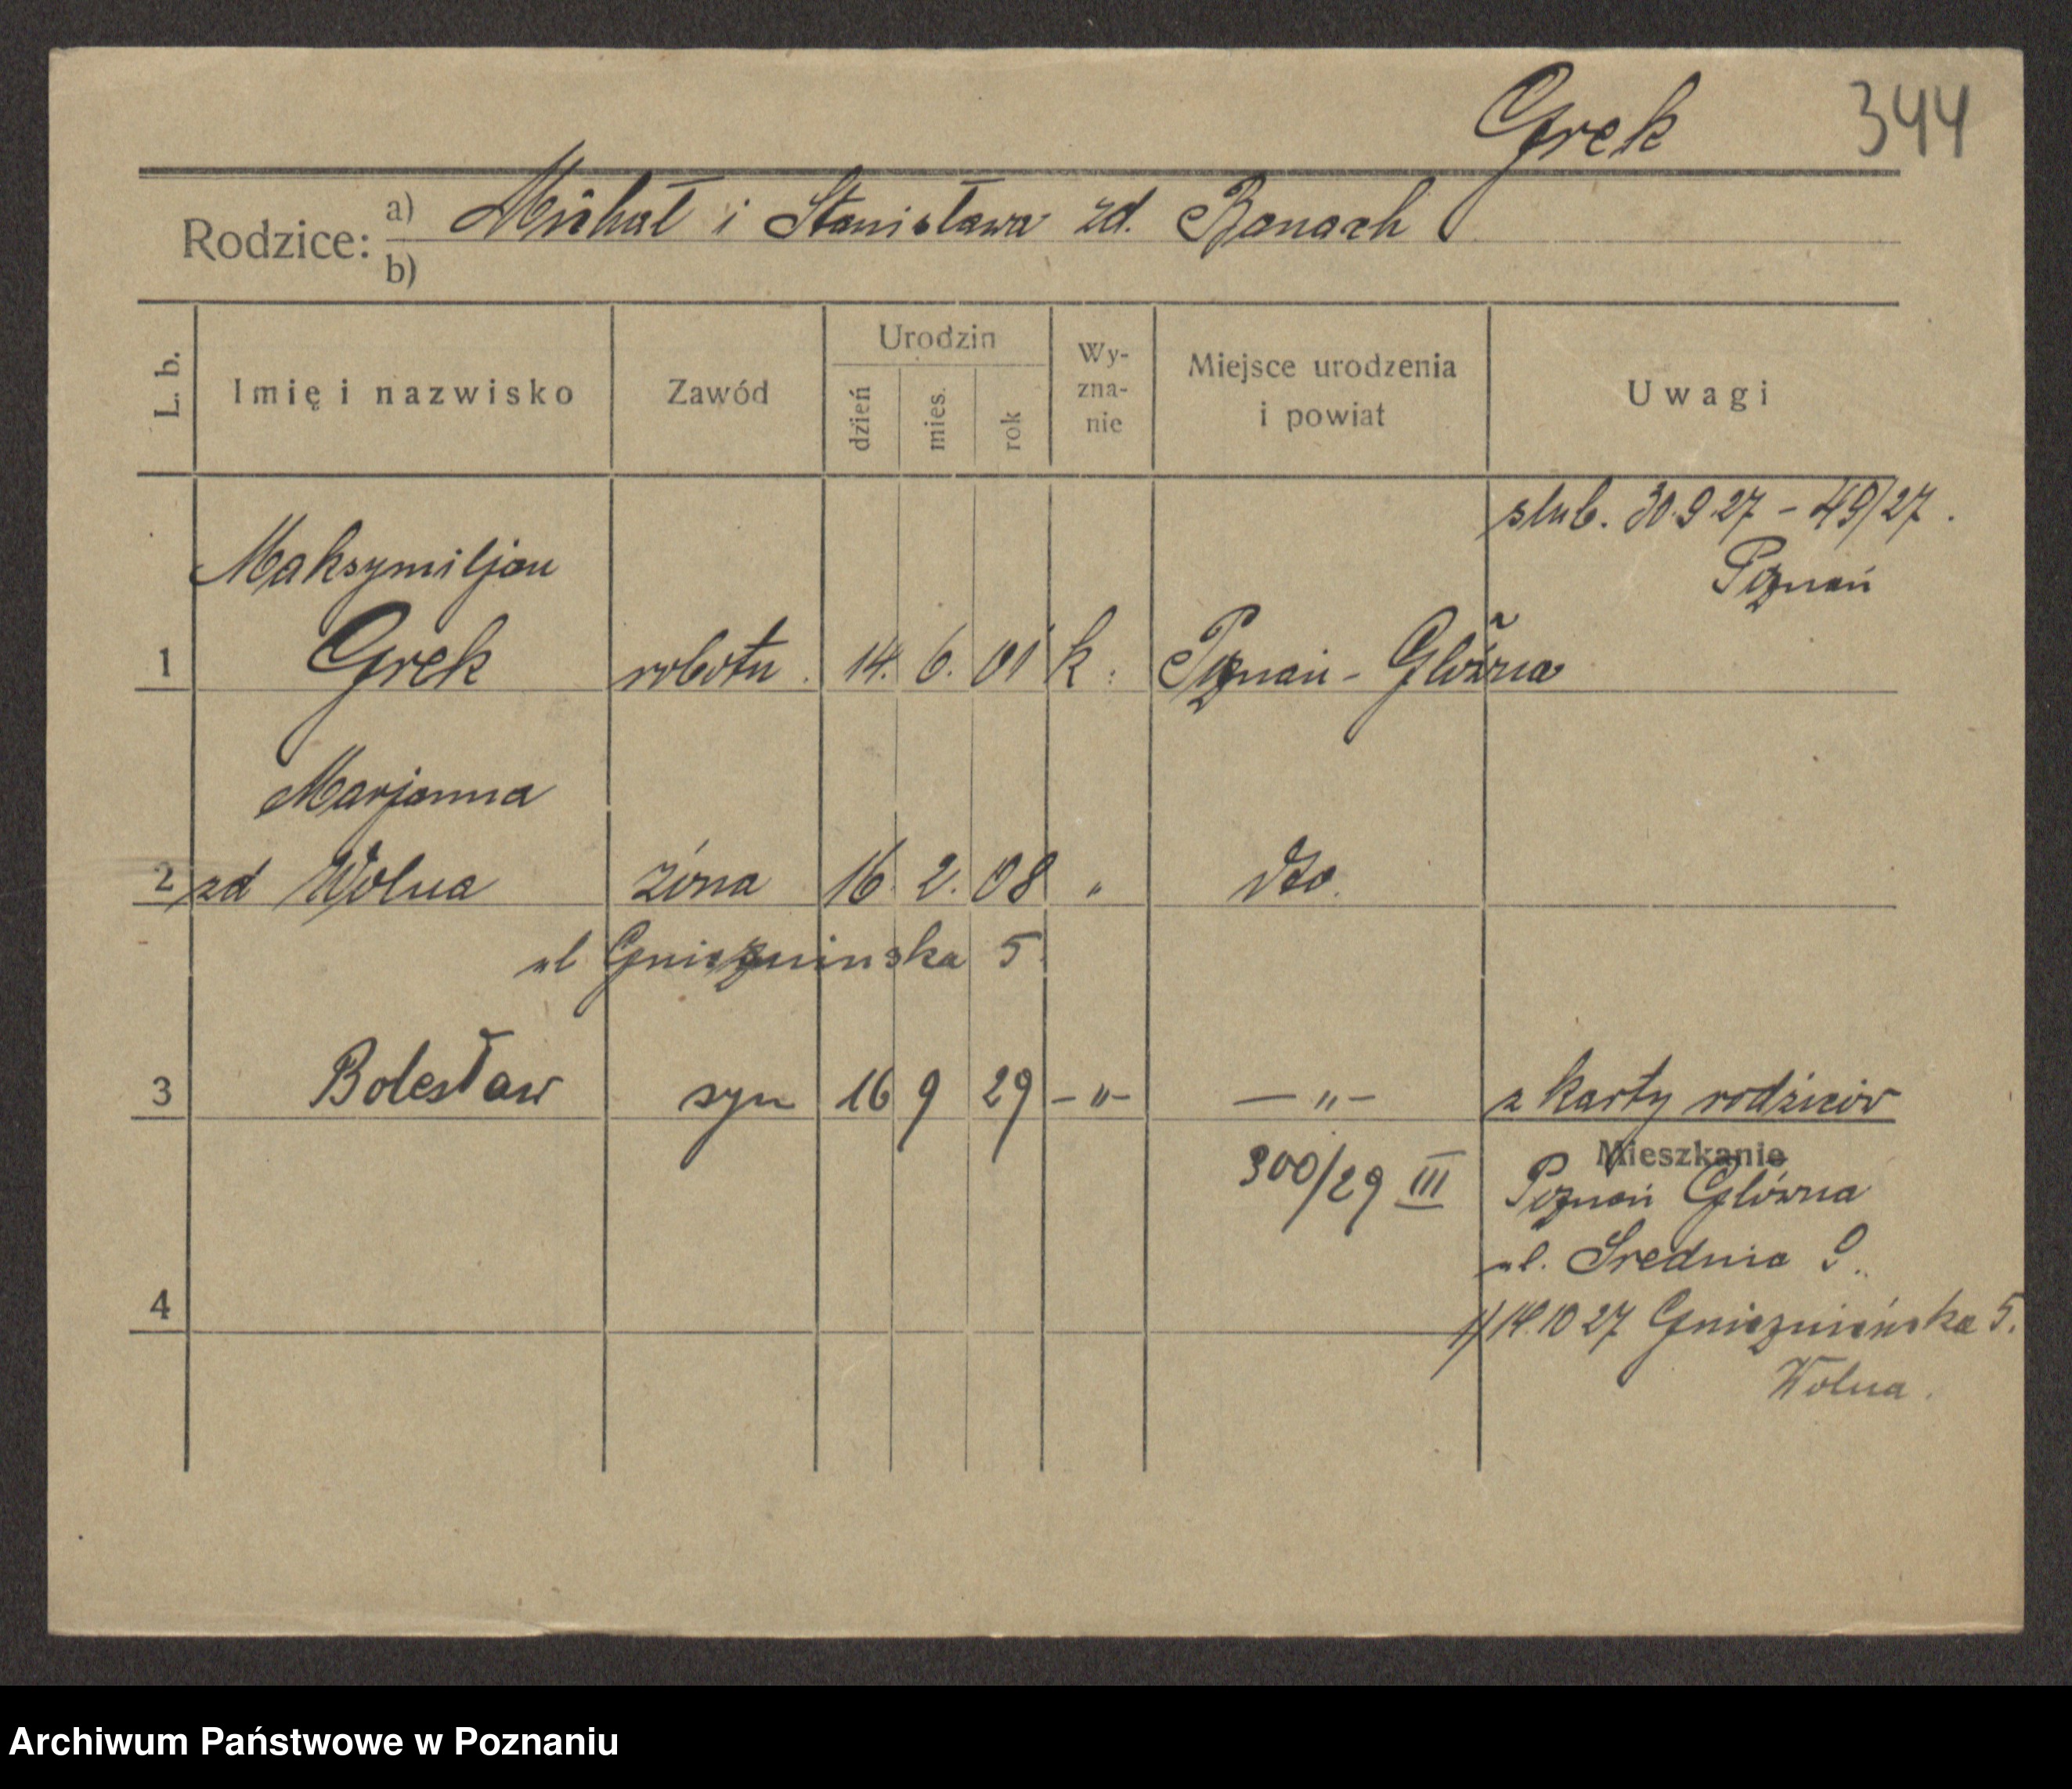 Grek 344
Rodzice: a) Michał i Stanisława zd. Banach
b)
L. b. Imię i nazwisko Zawód Urodzin dzień mies. rok Wy-zna-nie Miejsce urodzenia i powiat Uwagi
ślub. 30.9.27 - 49/27.
Poznań
Maksymiljan
1 Grek robotn. 14. 6. 01 k. Poznań - Główna
Marjanna
2 zd Wolna żona 16. 2. 08 " dto.
ul Gniezninska 5.
3 Bolesław syn 16 9 29 -"- -"- z karty rodziców
300/29 III Mieszkanie
Poznań Główna
ul. Srednia 9.
4
1/14.10 27 Gnieznieńska 5.
Wolna.
Archiwum Państwowe w Poznaniu